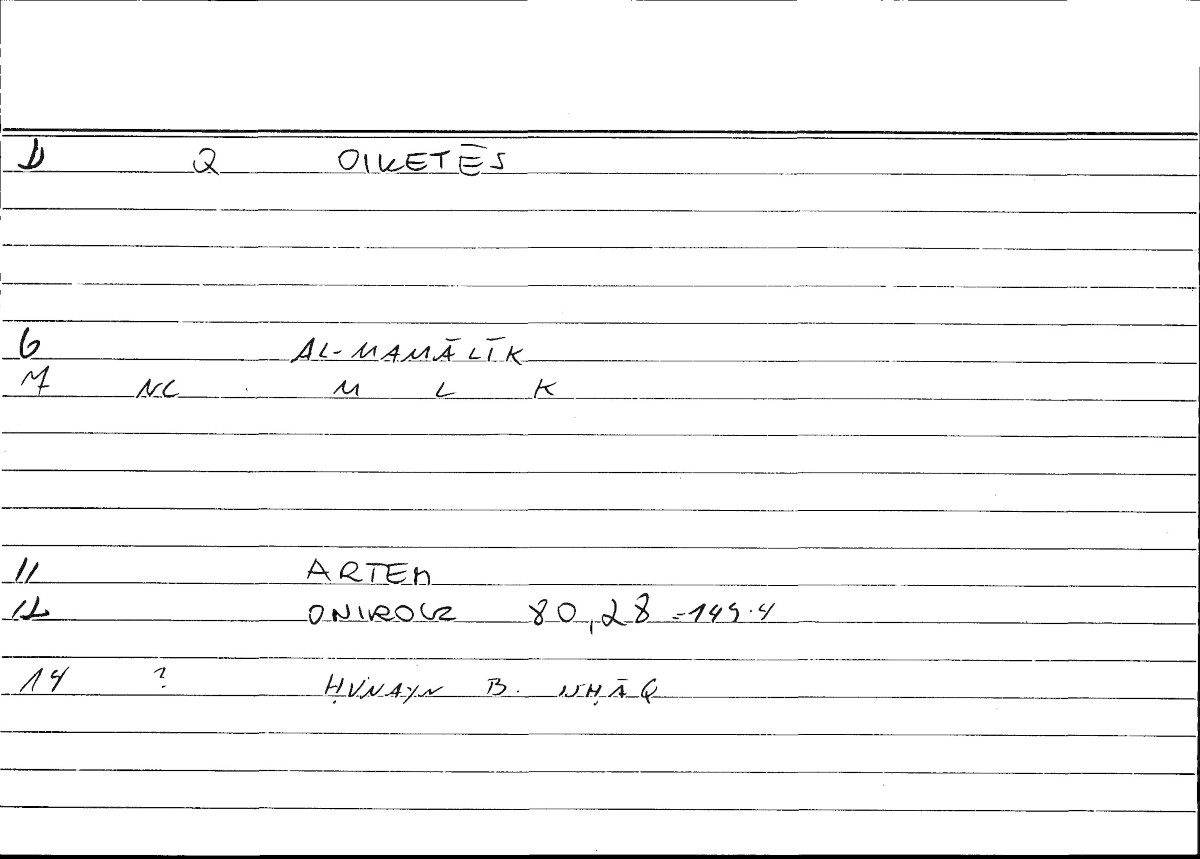 D Q OIKETĒS
6 AL-MAMĀLĪK
7 NC . M L K
11 ARTEM
12 ONIROCR 80,28 =149.4
14 ? ḤUNAYN B. ISḤĀQ